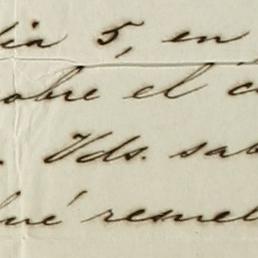 dia 5, en
sobre el c
. Vds. sab
hué resuel